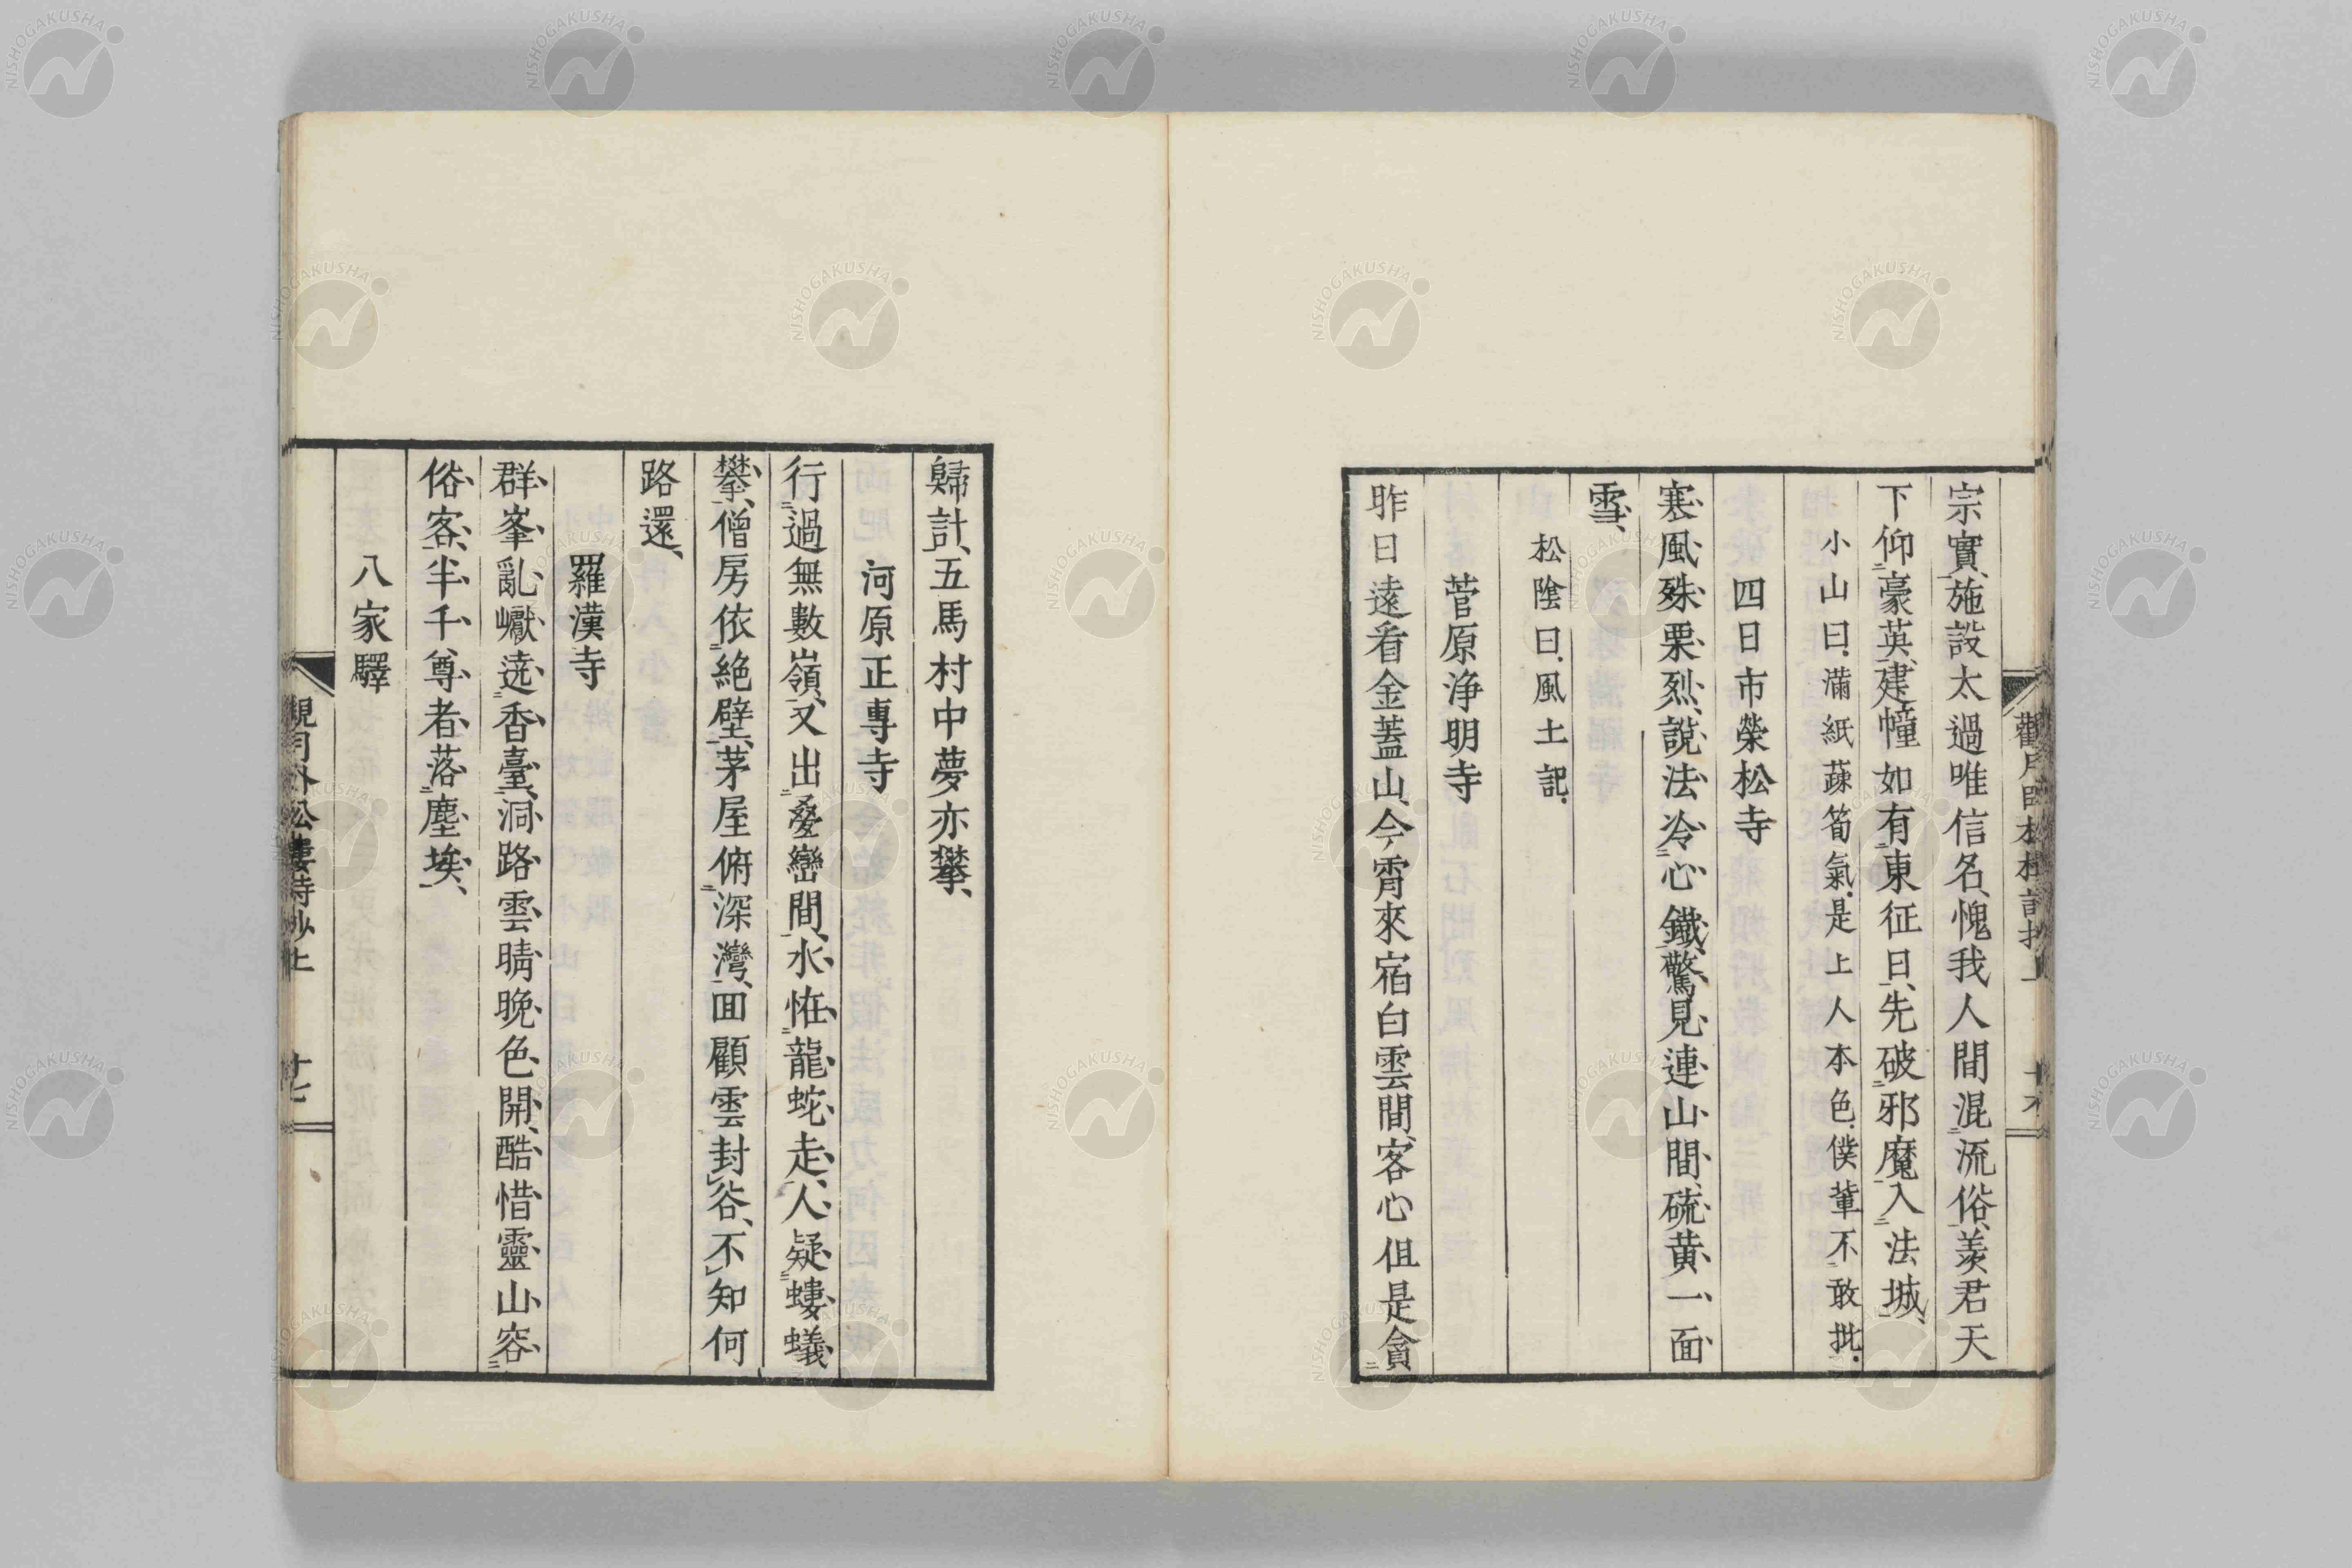 宗實、施設太過唯信名、愧我人間混流俗、羨君天
下仰豪英、建幢如有東征日、先破邪魔入法城、
小山曰、滿紙蔬筍氣、是上人本色、僕輩不敢批、
四日市榮松寺
寒風殊栗烈、說法冷心鐵、驚見連山間、硫黄一面
雪、
松陰曰、風土記、
菅原淨明寺
昨日遠看金蓋山、今霄來宿白雲間、客心但是貪
歸計、五馬村中夢亦攀、
河原正專寺
行過無數嶺、又出疊巒間、水恠龍蛇走、人疑螻蟻
攀、僧房依絶壁、茅屋俯深灣、囬顧雲封谷、不知何
路還、
羅漢寺
群峯亂巘遶香臺、洞路雲晴晩色開、酷惜靈山容
俗客、半千尊者落塵埃、
八家驛
十七
NISHOGAKUSHA